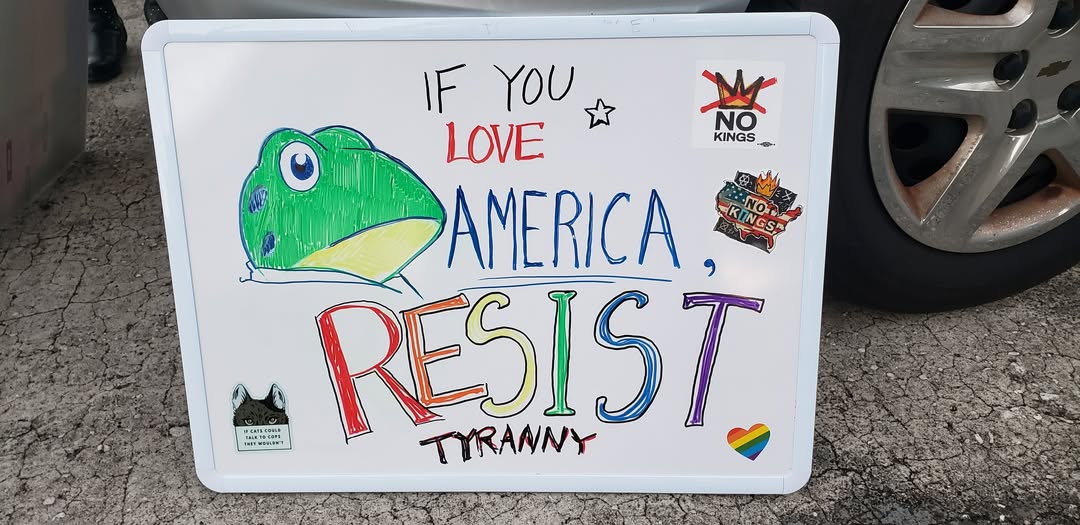 IF YOU
LOVE
AMERICA,
RESIST
TYRANNY
NO
KINGS
NO
KINGS
IF CATS COULD
TALK TO COPS
THEY WOULDN'T